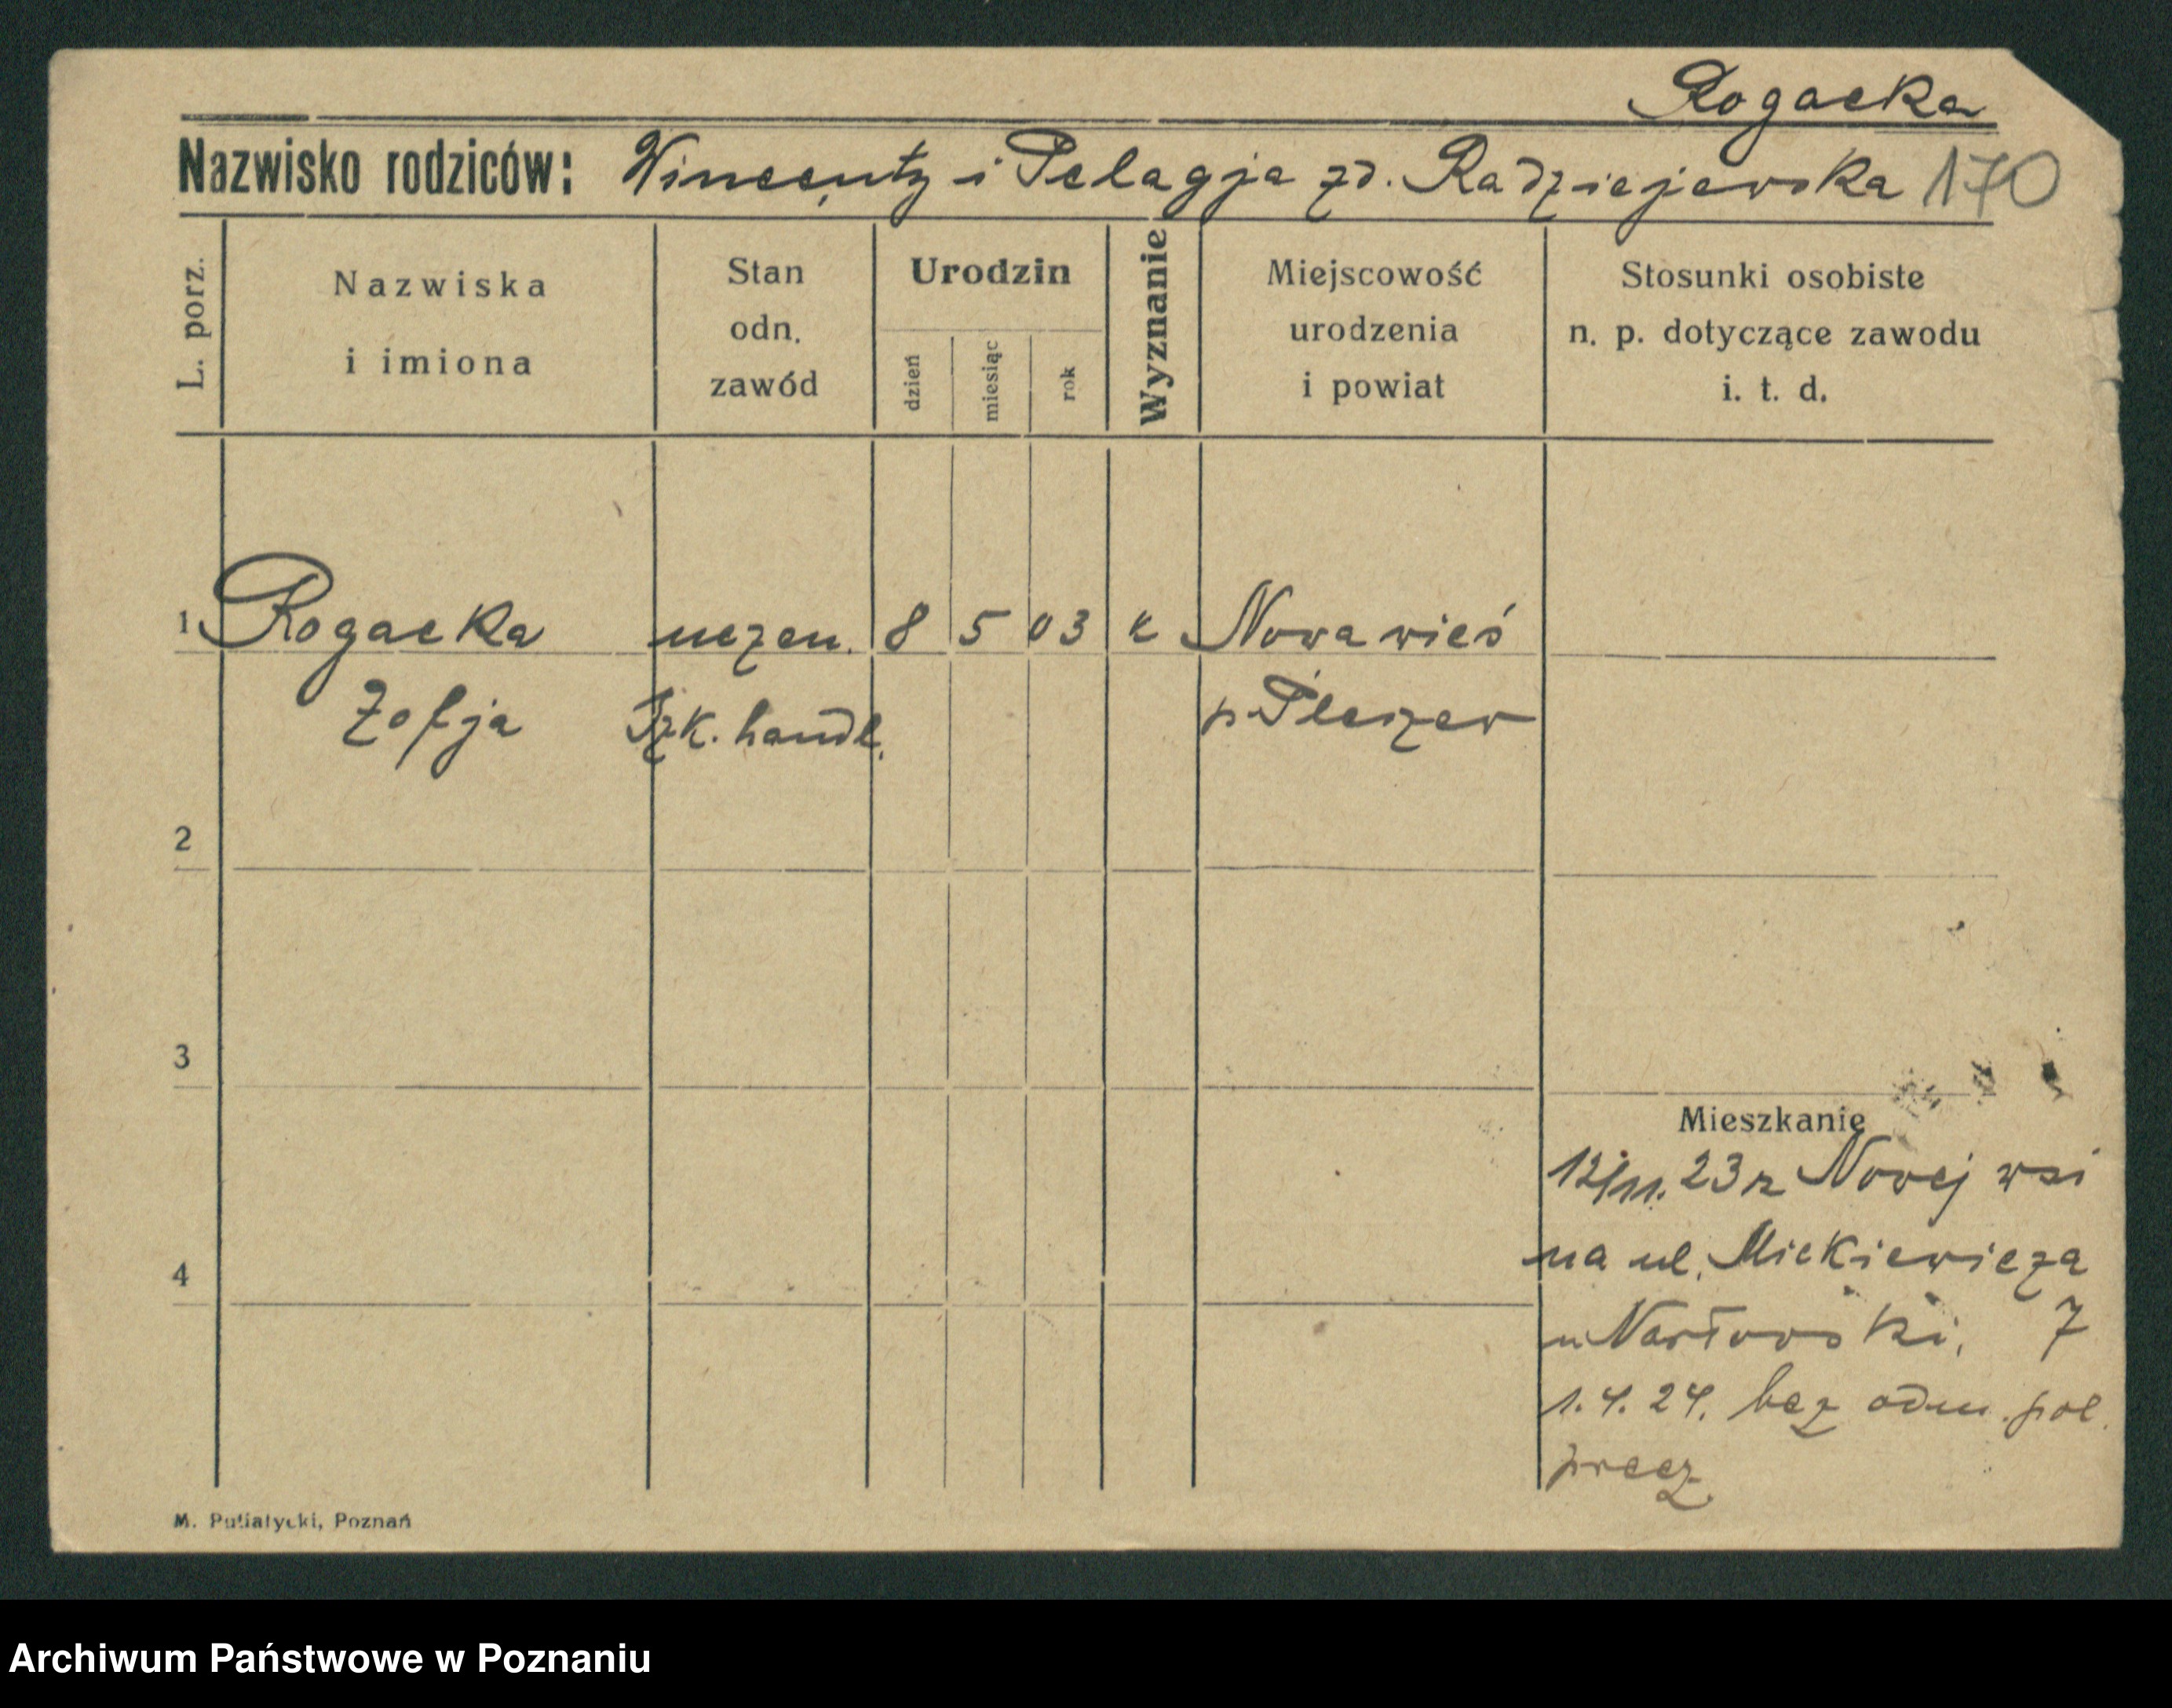 Rogacka
Nazwisko rodziców: Wincenty i Pelagja zd. Radziejewska 170
L. porz.
Nazwiska
i imiona
Stan
odn.
zawód
Urodzin
dzień
miesiąc
rok
Wyznanie
Miejscowość
urodzenia
i powiat
Stosunki osobiste
n. p. dotyczące zawodu
i. t. d.
1 Rogacka niezam. 8 5 03 k Nowawieś
Zofja handl. p. Pleszew
2
3
Mieszkanie
12/11. 23 z Nowej wsi
na ul. Mickiewicza
4
u 7
1. 4. 24. bez odm. pol.
precz
M. Putiatycki, Poznań
Archiwum Państwowe w Poznaniu